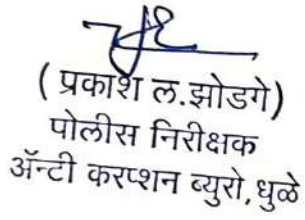 ( प्रकाश ल.झोडगे)
पोलीस निरीक्षक
ॲन्टी करप्शन ब्युरो,धुळे